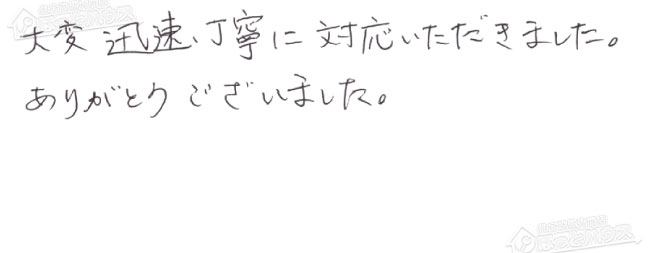 大変迅速、丁寧に対応いただきました。
ありがとうございました。